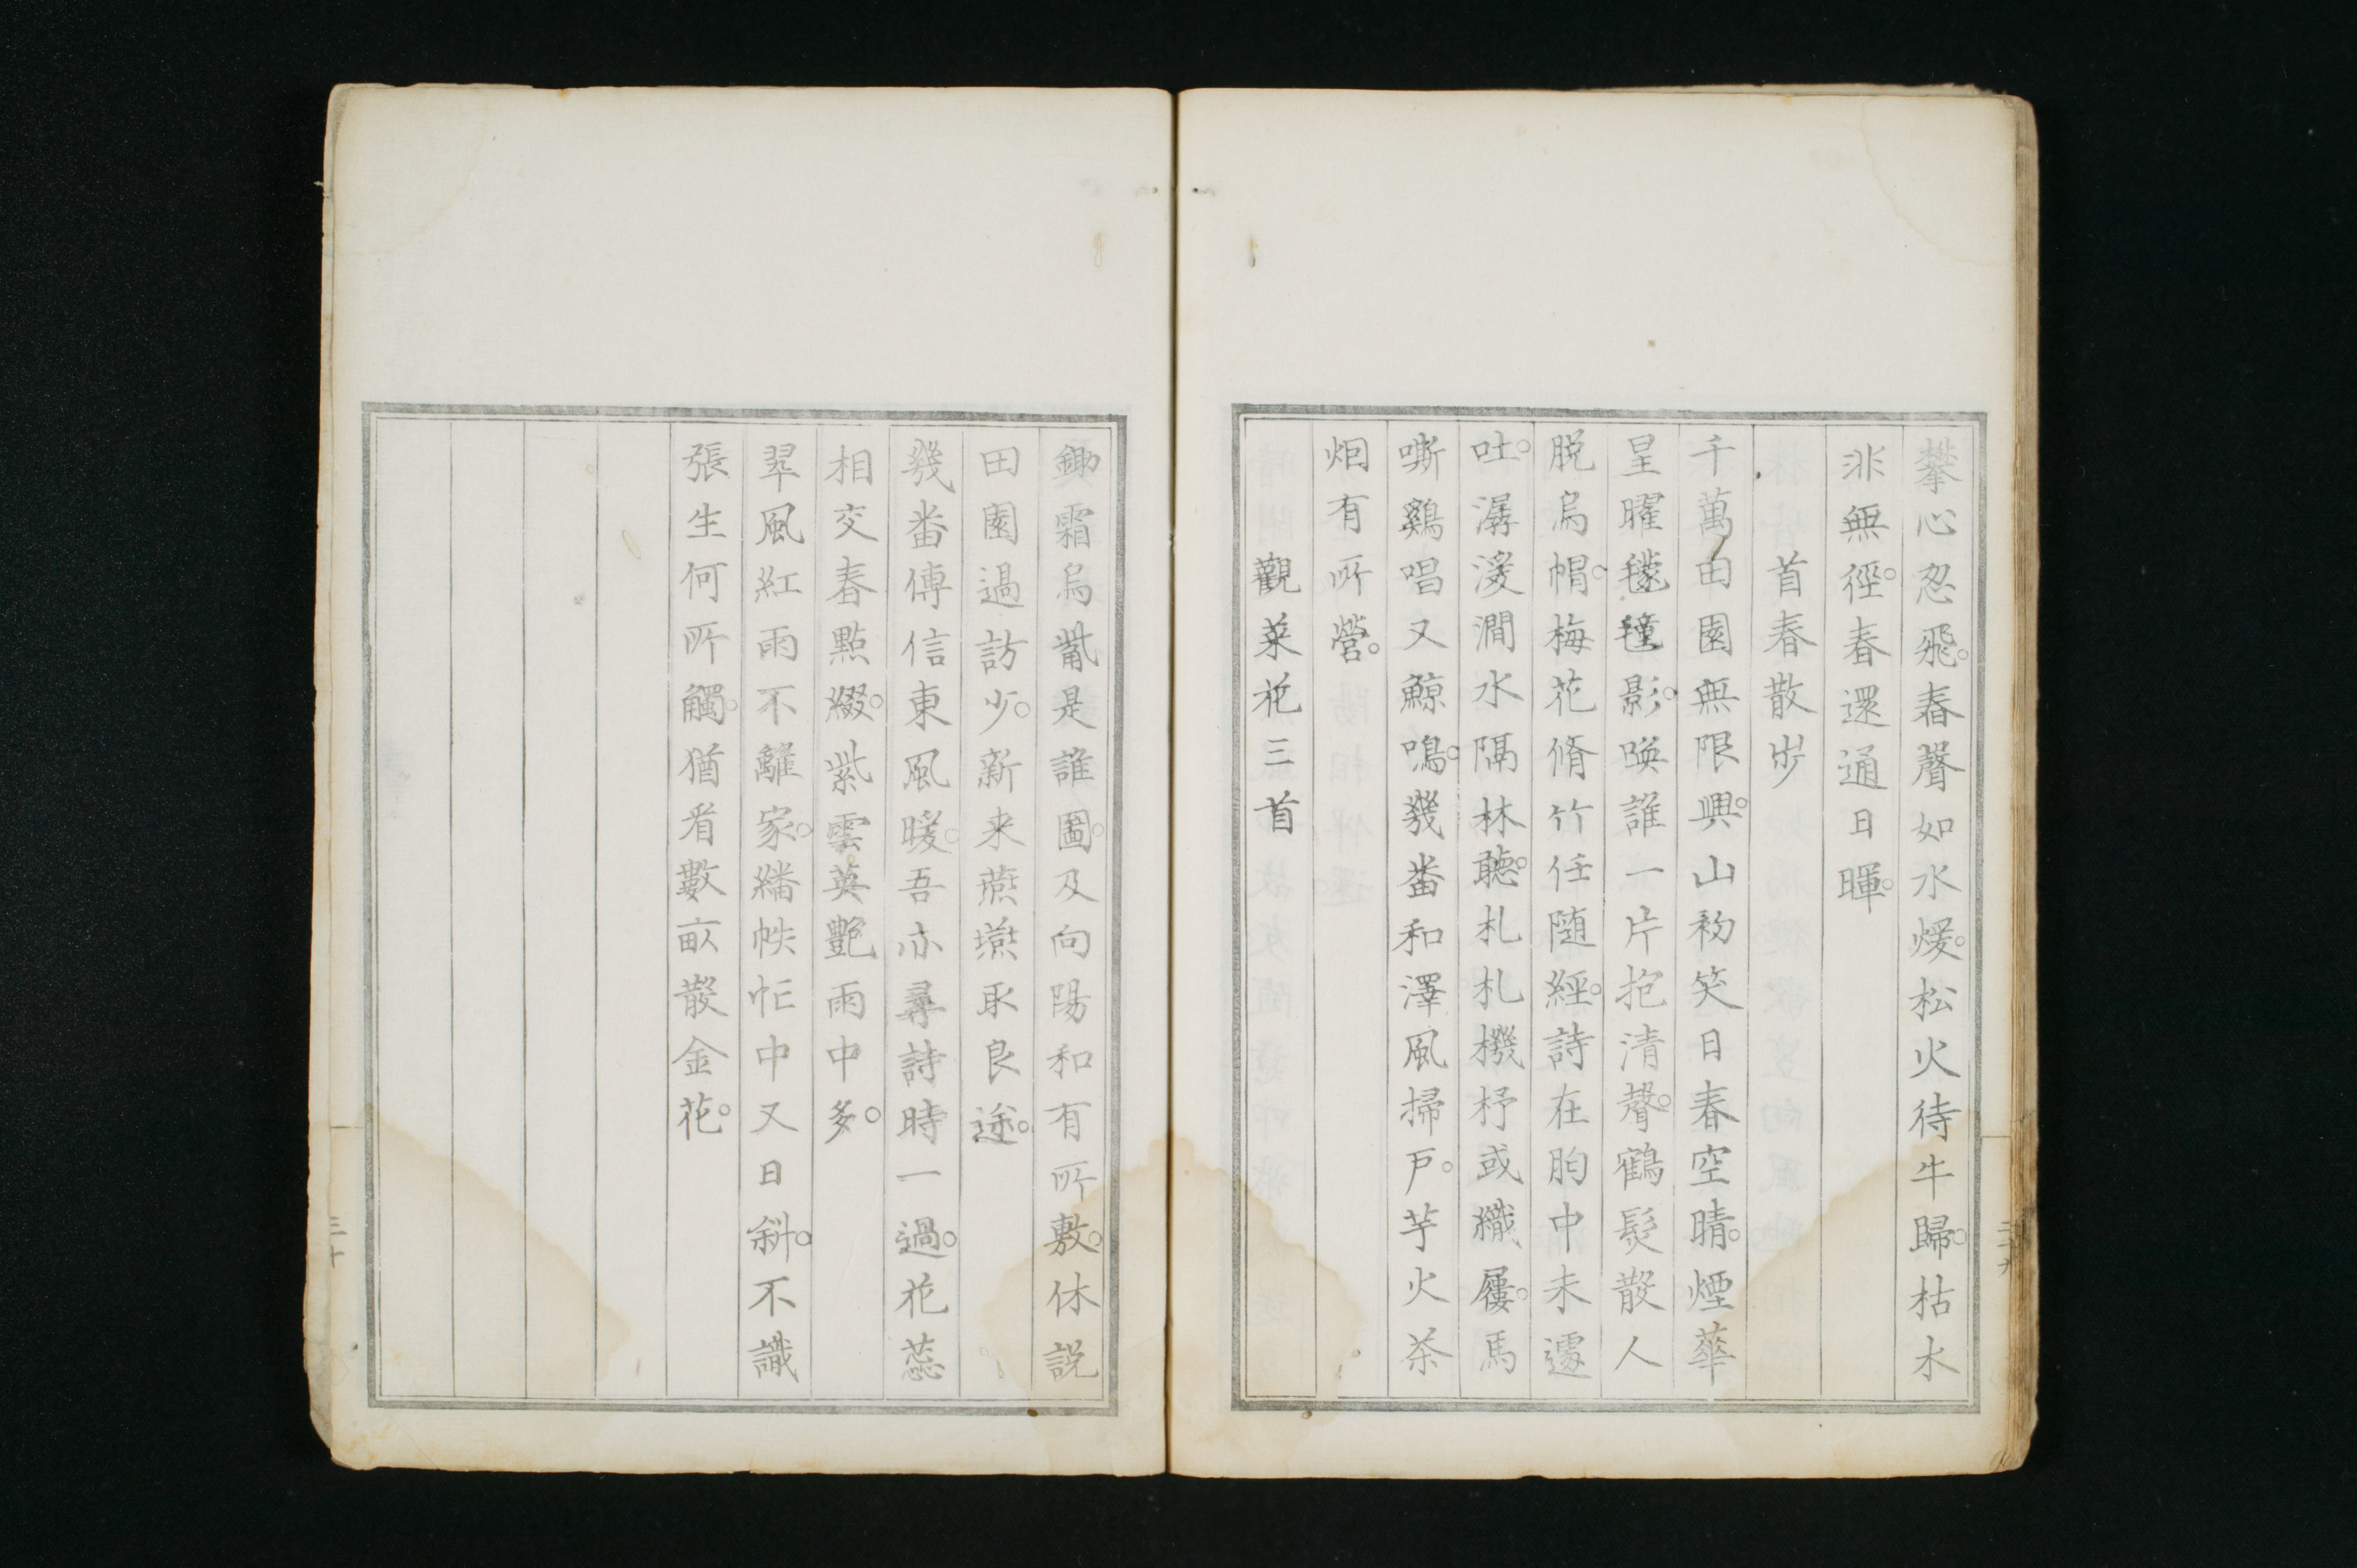 攀心忍飛。春聲如水煖。松火待牛歸。枯木
非無徑。春還通日暉。
首春散步
千萬田園無限興。山初笑日春空晴。煙華
皇曜氋氃影。喚誰一片抱清聲。鶴髮散人
脱烏帽。梅花脩竹任随經。詩在胸中未遽
吐。潺湲澗水隔林聽。札札機杼或織屨。馬
嘶鷄唱又鯨鳴。幾畨和澤風掃戸。芋火茶
烟有所營。
觀菜花三首
鋤霜烏鬗是誰圖。及向陽和有所敷。休説
田園過訪少。新来燕燕取良途。
幾畨傳信東風暖。吾亦尋詩時一過。花蕊
相交春點綴。紫雲英艷雨中多。
翠風紅雨不離家。繙帙忙中又日斜。不識
張生何所觸。猶看數畝散金花。
二十九
三十